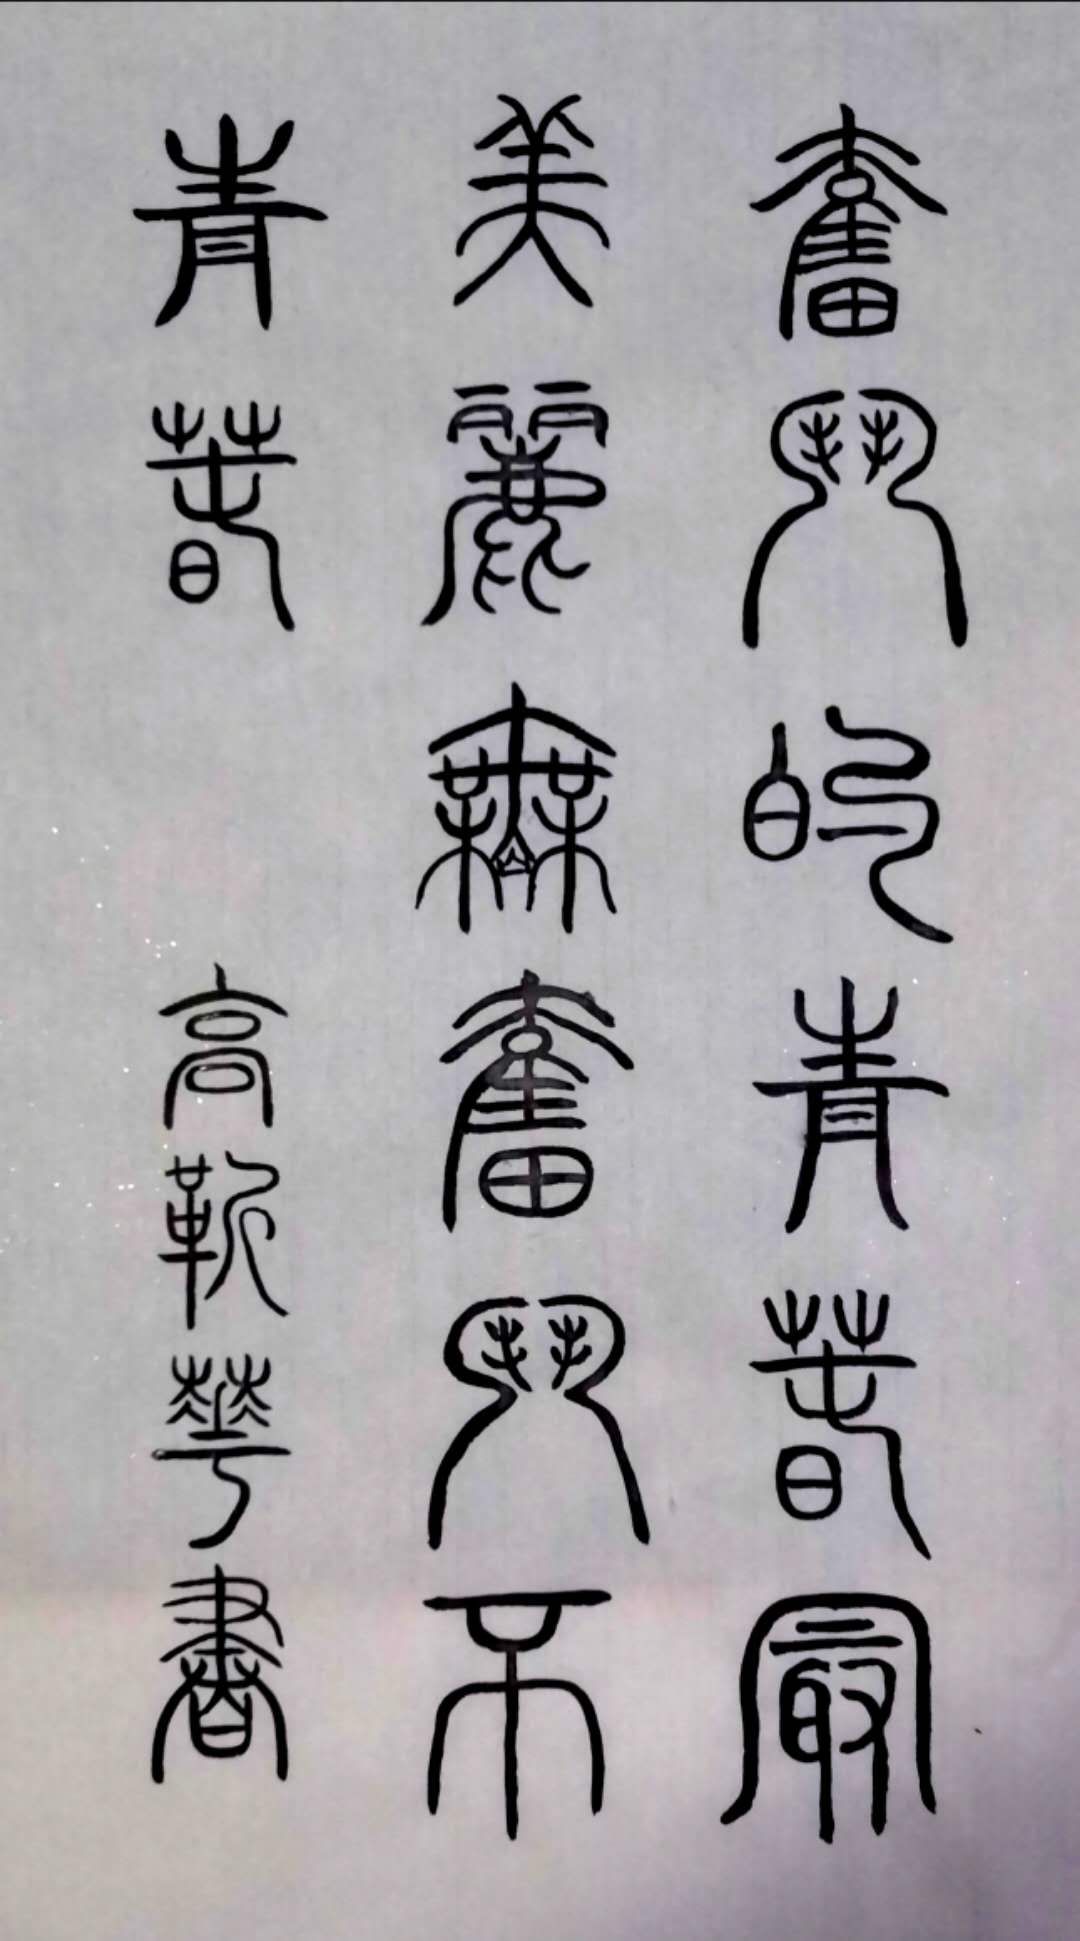 奮鬥的青春最
美麗無奮鬥不
青春
高靳華書